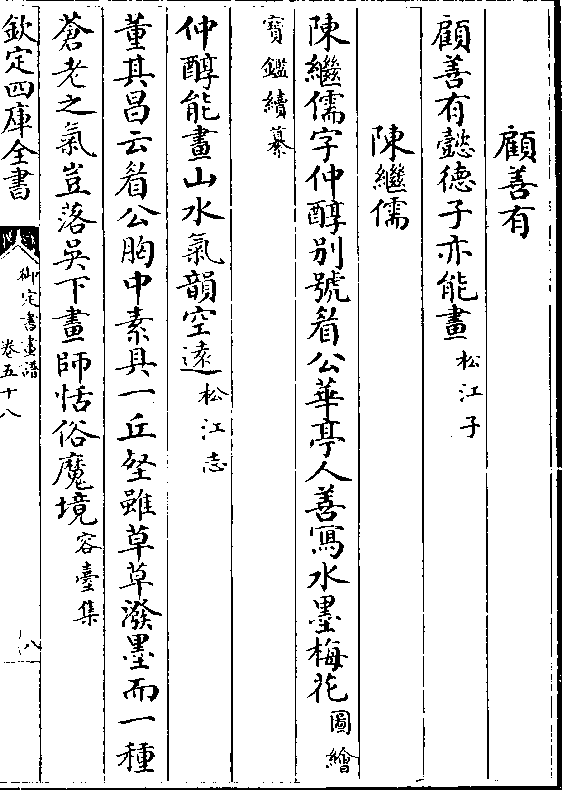 顧善有
顧善有懿德子亦能畫松江子
陳繼儒
陳繼儒字仲醇别號眉公華亭人善寫水墨梅花圖繪
寳鑑續纂
仲醇能畫山水氣韻空逺松江志
董其昌云眉公胸中素具一丘壑雖草草潑墨而一種
蒼老之氣豈落吳下畫師恬俗魔境容臺集
欽定四庫全書
御定書畫譜
卷五十八
八